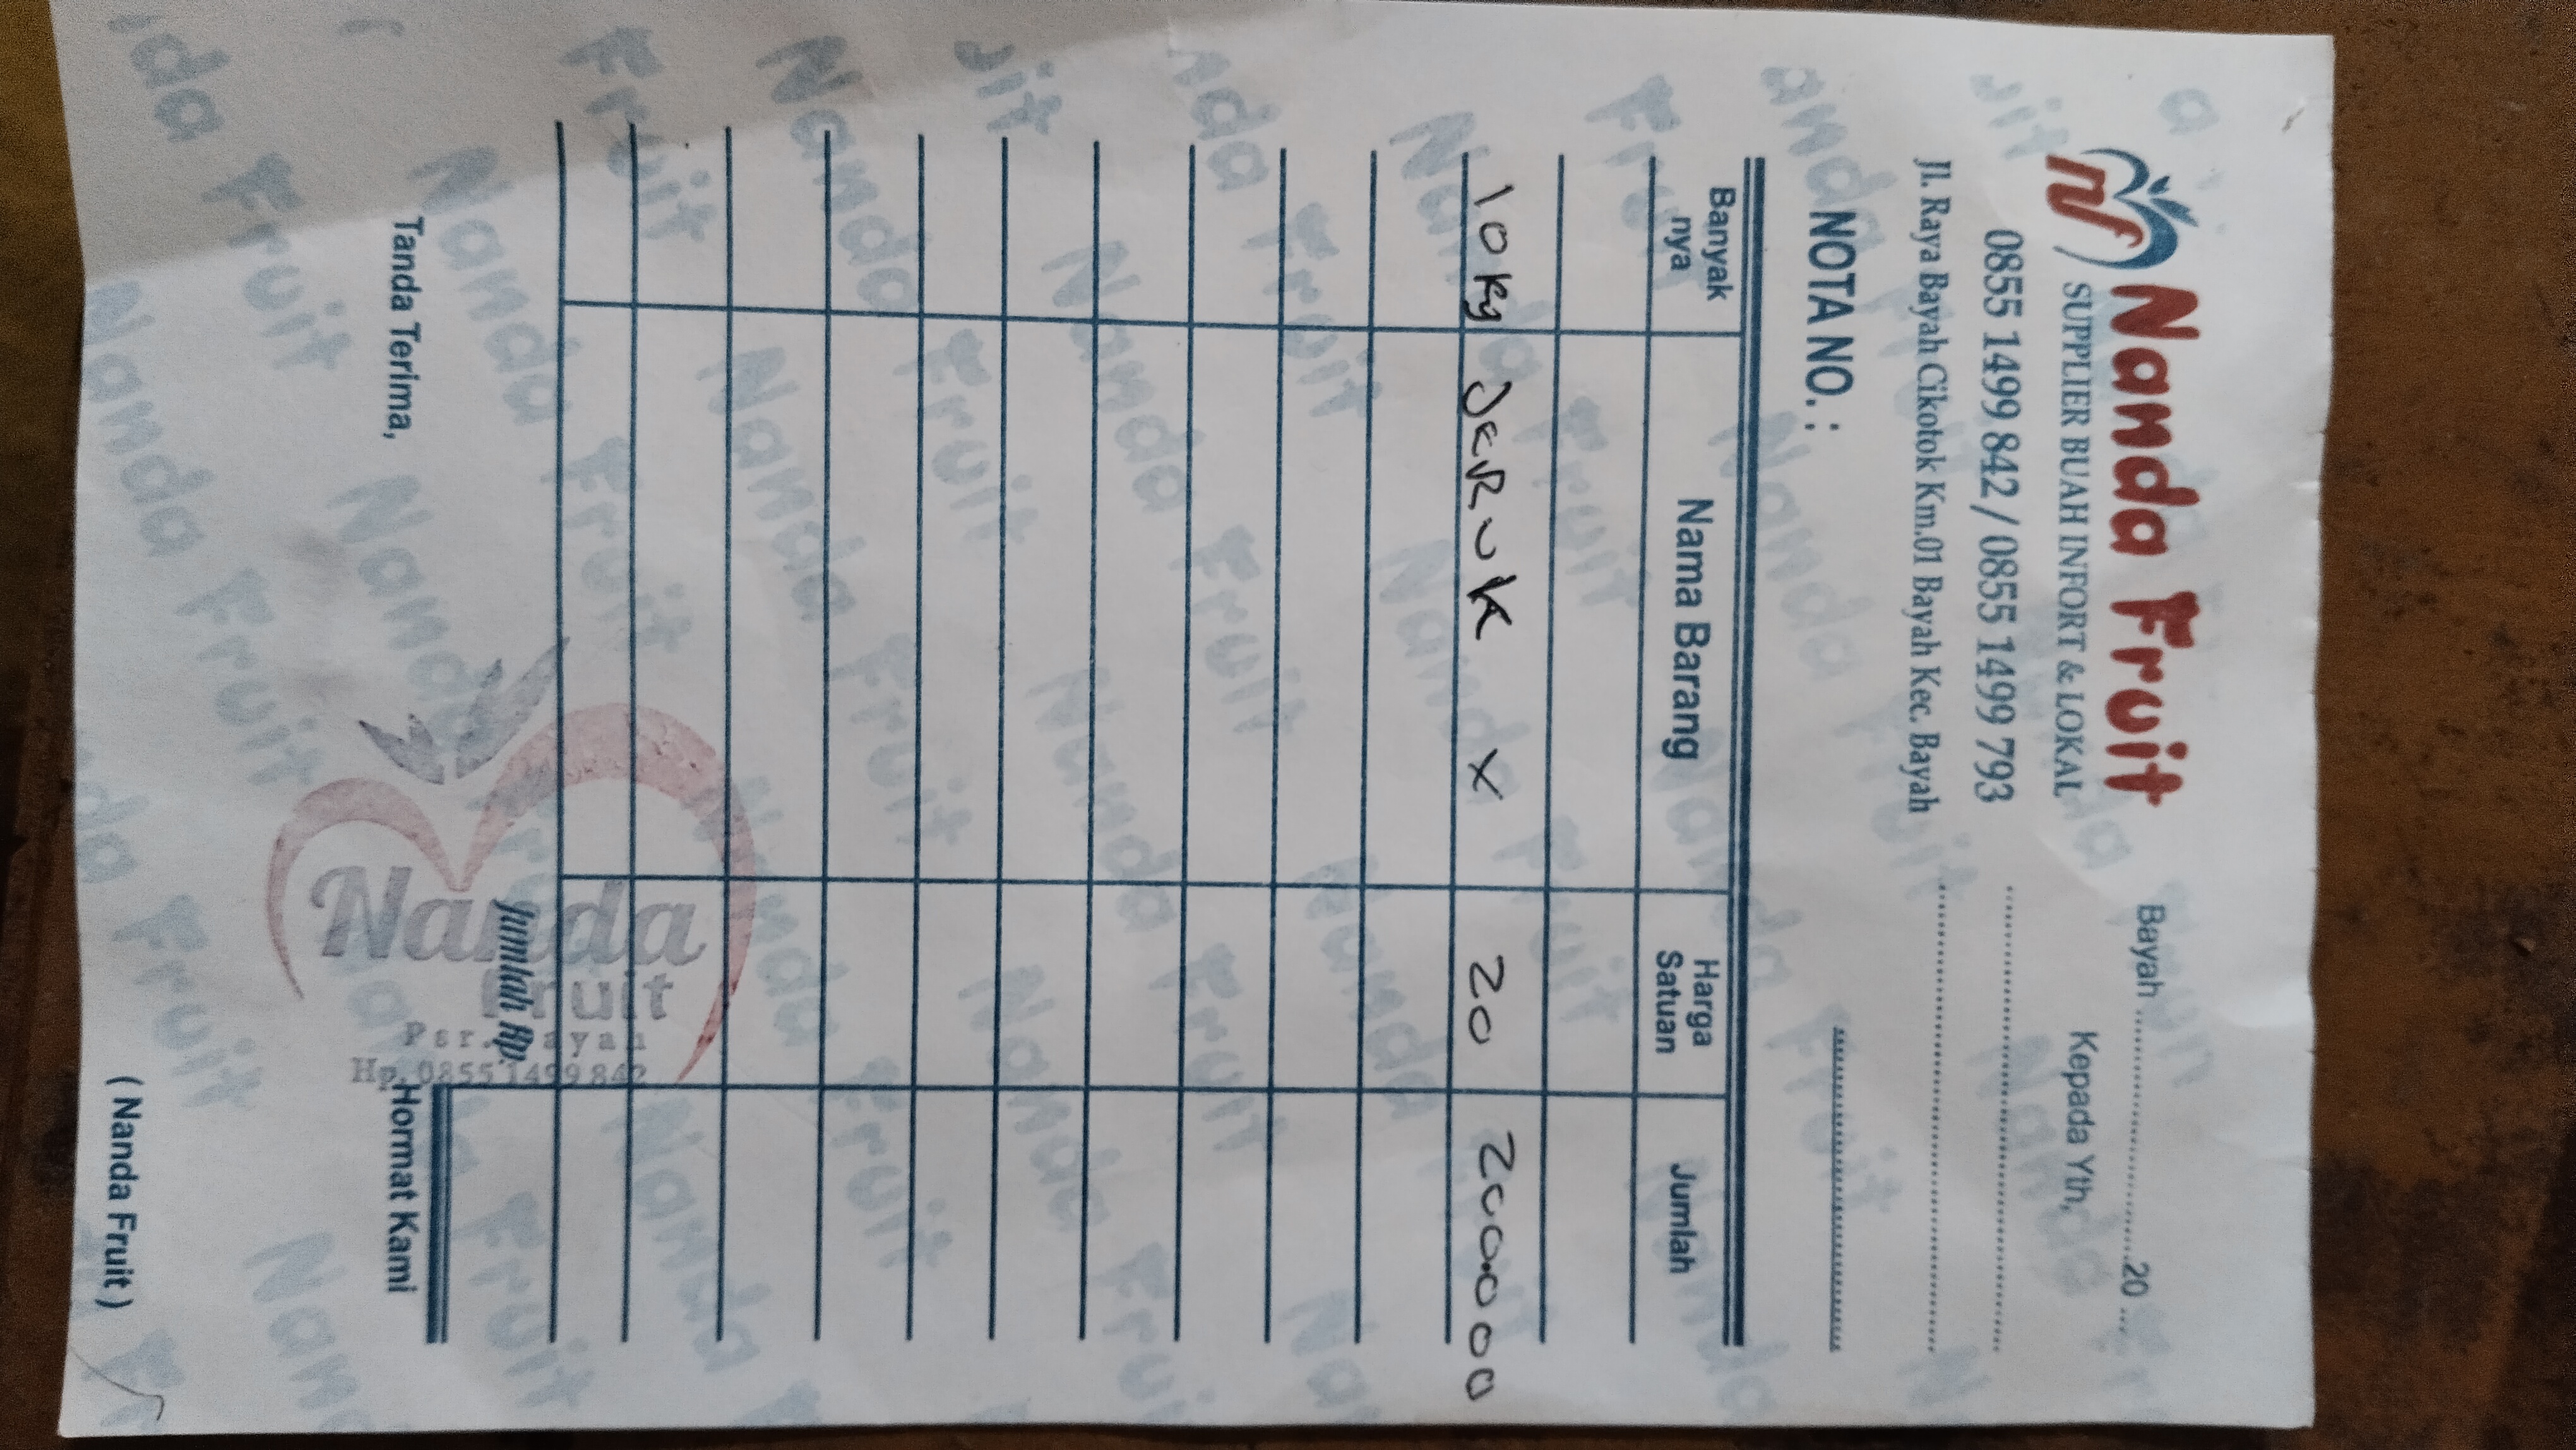 Nanda Fruit
nf SUPPLIER BUAH INFORT & LOKAL
0855 1499 842 / 0855 1499 793
Jl. Raya Bayah Cikotok Km.01 Bayah Kec. Bayah
Bayah ........................20 ...
Kepada Yth,
NOTA NO. :
Banyak nya Nama Barang Harga Satuan Jumlah
10 Kg JERUK X 20 200.000
Jumlah Rp.
Tanda Terima, Hormat Kami
( Nanda Fruit )
Nanda
Fruit
Psr. Bayah
Hp. 0855 1499 842